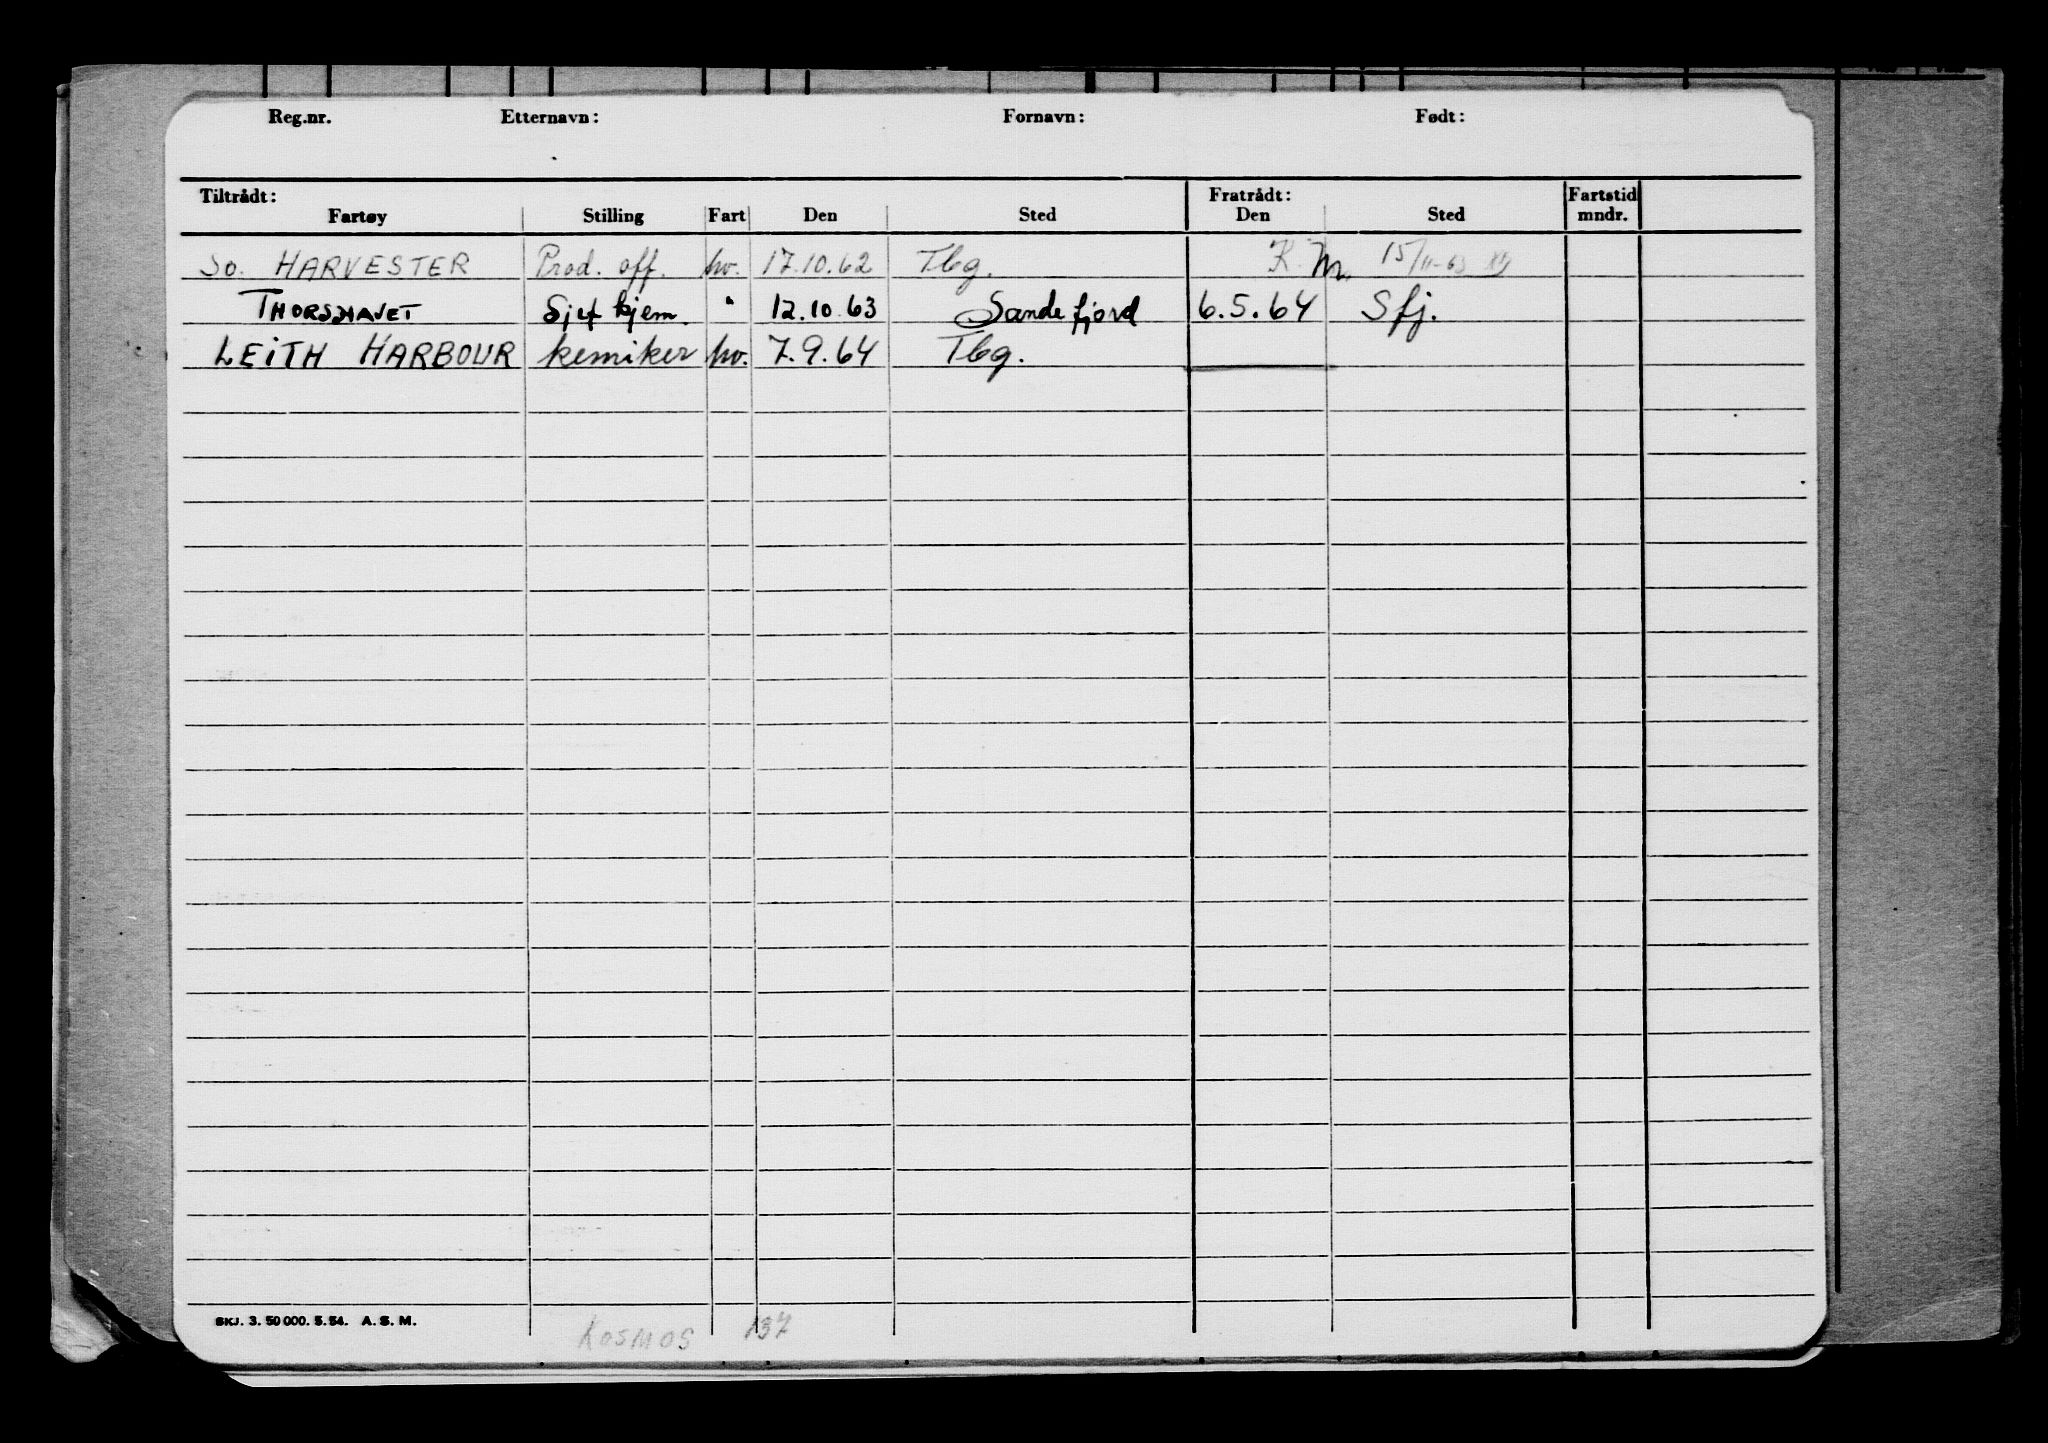 Reg.nr. Etternavn: Fornavn: Født:
Tiltrådt: Fratrådt: Fartstid
Fartøy Stilling Fart Den Sted Den Sted mndr.
So. HARVESTER Prod. off. hv. 17.10.62 Tbg. K. 15/
THORSHAVET Sjef kjem. " 12.10.63 Sandefjord 6.5.64 Sfj.
LEITH HARBOUR kemiker hv. 7.9.64 Tbg.
SKJ. 3. 50 000. 5. 54. A. S. M.
KOSMOS 137